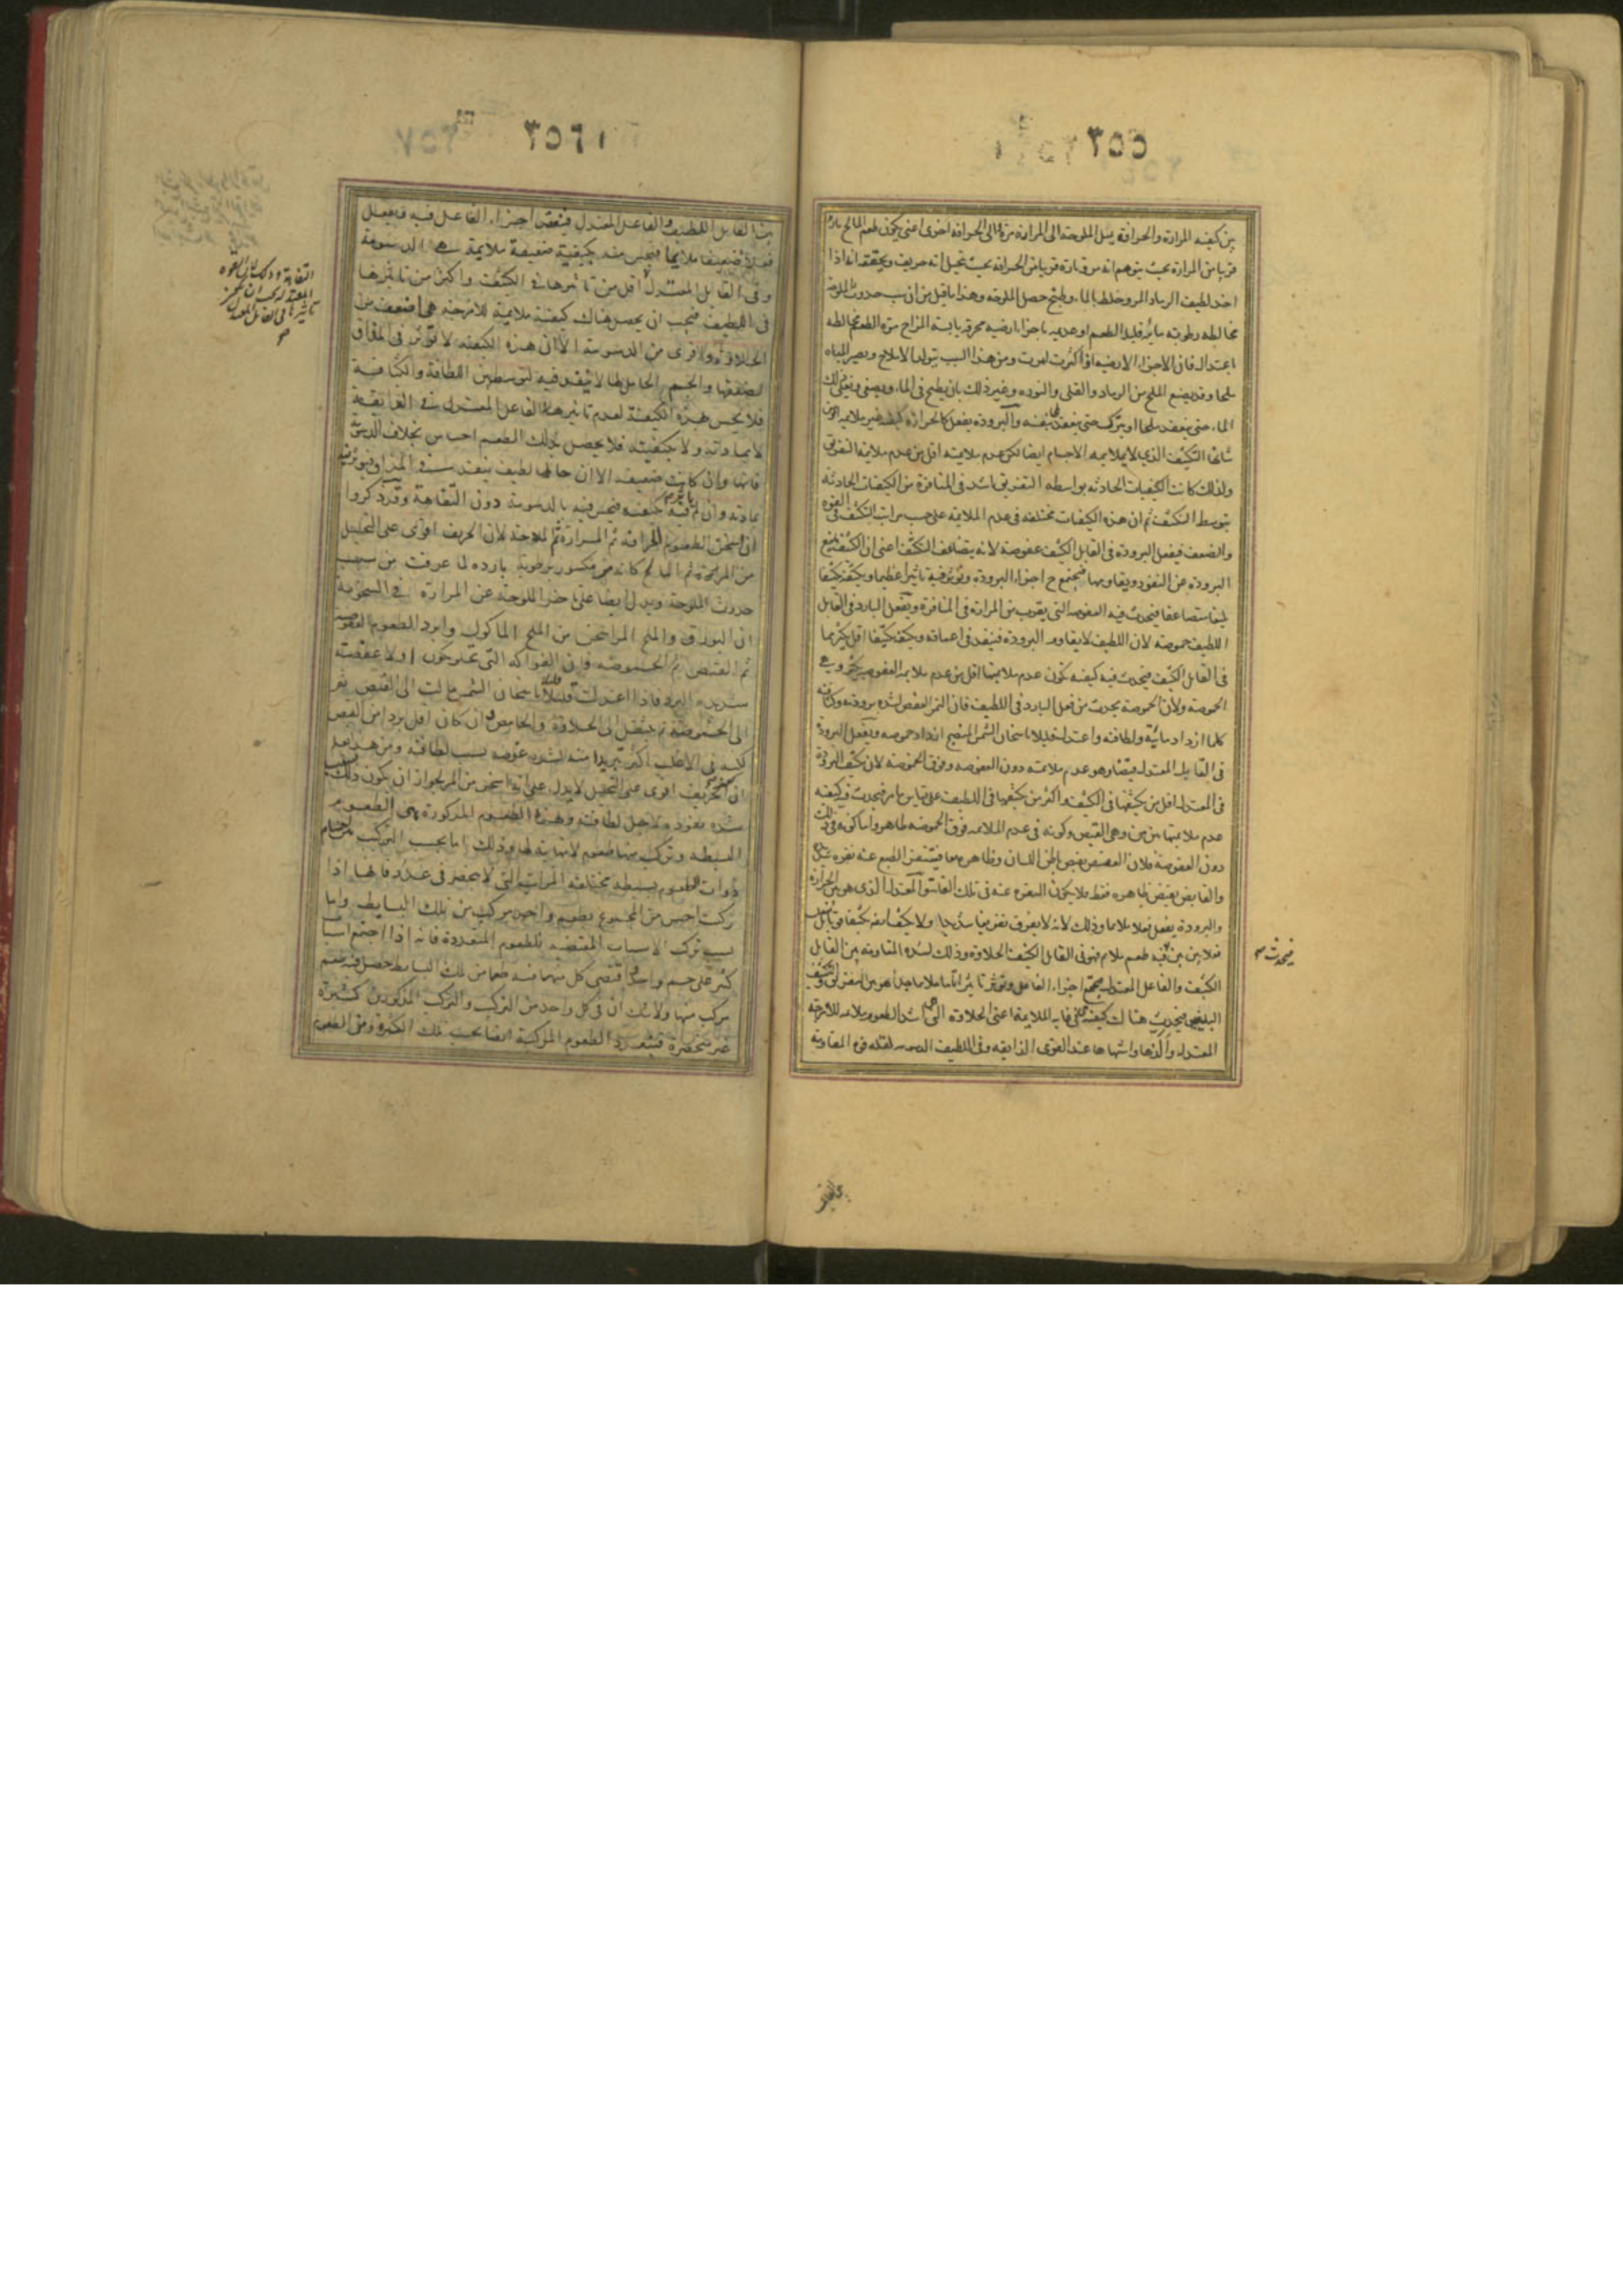 ٣٥٥
بين كيفية المرارة والحرافة يميل الملوحة الى المرارة مرة والى الحرافة اخرى اعنى يكون طعم المالح تارة
قريبا من المرارة بحيث يتوهم انه مر وتارة قريبا من الحرافة بحيث يتخيل انه حريف ويحققه انه اذا
اخذ لطيف الرماد المر وخلط بالماء وطبخ حصل الملوحة وهذا ما قيل من ان سبب حدوث الملوحة
مخالطة رطوبة مائية قليلة الطعم او عديمه باجزاء ارضية محرقة يابسة المزاج مرة الطعم مخالطة
باعتدال فان الاجزاء الارضية اذا كثرت امرت ومن هذا السبب يتولد الاملاح ويصير المياه
ملحا وقد يصنع الملح من الرماد والقلى والنورة وغير ذلك بان يطبخ فى الماء ويصفى ويغلى ذلك
الماء حتى ينعقد ملحا او يترك حتى ينعقد بنفسه والبرودة يفعل كالحرارة كيفية غير ملايمة اذ من
شانها التكثيف الذي لا يلايمه الاجسام ايضا لكن عدم ملايمته اقل من عدم ملايمة التفريق
ولذلك كانت الكيفيات الحادثة بواسطة التفريق اشد فى المنافرة من الكيفيات الحادثة
بتوسط التكثيف ثم ان هذه الكيفيات مختلفة فى عدم الملايمة على حسب مراتب التكثيف فى القوة
والضعف فيفعل البرودة فى القابل الكثيف عفوصة لانه يتضاعف التكثف اعنى ان الكثيف يمنع
البرودة عن النفوذ ويقاومها فيجتمع ح اجزاء البرودة ويؤثر فيه تاثيرا عظيما ويكثفه تكثيفا
بليغا متضاعفا فيحدث فيه العفوصة التى يقرب من المرارة فى المنافرة ويفعل البارد فى القابل
اللطيف حموضة لان اللطيف لا يقاوم البرودة فينفذ فى اعماقه ويكثفه تكثيفا اقل كثيرا مما
فى القابل الكثيف فيحدث فيه كيفية تكون عدم ملايمتها اقل من عدم ملايمة العفوصة بكثير وهي
الحموضة ولان الحموضة يحدث من فعل البارد فى اللطيف فان الثمر العفص لشدة برودته وكثافته
كلما ازداد مائية ولطافة واعتدل قليلا باسخان الشمس المنضج ازداد حموضة ويفعل البرودة
فى القابل المعتدل قبضا وهو عدم ملايمته دون العفوصة وفوق الحموضة لان تكثيف البرودة
فى المعتدل اقل من تكثيفها فى الكثيف واكثر من تكثيفها فى اللطيف على قياس ما مر فيحدث فيه كيفية
عدم ملايمتها بين بين وهى القبض وكونه فى عدم الملايمة فوق الحموضة ظاهر واما كونه فى ذلك
دون العفوصة فلان العفص يقبض باطن اللسان وظاهره معا فيتنفر الطبع عنه نفرة شديدة
والقابض يقبض ظاهره فقط فلا يكون النفرة عنه فى تلك الغاية والمعتدل الذى هو بين الحرارة
والبرودة يفعل فعلا ملايما وذلك لانه لا يفرق تفريقا شديدا ولا يكثف ايضا تكثيفا
فلا بين بين فيه طعم ملايم فهو فى القابل الكثيف الحلاوة وذلك لشدة المقاومة بين القابل
الكثيف والفاعل المعتدل فيجتمع اجزاء الفاعل ويؤثر تاثيرا تاما ملايما
البليغين فيحدث هناك كيفية فى غاية الملايمة اعنى الحلاوة التى هى اشد الطعوم ملايمة للامزجة
المعتدلة والذها واشهاها عند القوى الذايقة وفى اللطيف الدسومة لقلة المقاومة
فيحدث
٣٥٦
بين القابل اللطيف والفاعل المعتدل فينقص اجزاء الفاعل فيه فيفعل
فعلا ضعيفا ملايما فيحس منه بكيفية ضعيفة ملايمة هي الدسومة
وفى القابل المعتدل اقل من تاثيرها فى الكثيف واكثر من تاثيرها
فى اللطيف فيجب ان يحصل هناك كيفية ملايمة للامزجة هى اضعف من
الحلاوة واقوى من الدسومة الا ان هذه الكيفية لا تؤثر فى المذاق
لضعفها والجسم الحامل لها لا ينفذ فيه لتوسطه بين اللطافة والكثافة
فلا يحس بهذه الكيفية لعدم تاثير هذا الفاعل المعتدل فى الذايقة
لا بمادته ولا بكيفيته فلا يحصل بذلك الطعم احساس بخلاف الدسومة
فانها وان كانت ضعيفة الا ان حاملها لطيف ينفذ فى المذاق فيؤثر فيه
بمادته وان لم يؤثر فيه بكيفيته فيحس فيه بالدسومة دون التفاهة وقد ذكروا
ان اسخن الطعوم الحرافة ثم المرارة ثم الملوحة لان الحريف اقوى على التحليل
من المر ثم المالح كانه مر مكسور برطوبة باردة لما عرفت من سبب
حدوث الملوحة ويدل ايضا على تاخر الملوحة عن المرارة فى السخونة
ان البورق والملح المر اسخن من الملح الماكول وابرد الطعوم العفوصة
ثم القبض ثم الحموضة فان الفواكه التى تحلو تكون اولا عفصة
شديدة البرد فاذا اعتدلت قليلا باسخان الشمس مالت الى القبض ثم
الى الحموضة ثم تنتقل الى الحلاوة والحامض وان كان اقل بردا من العفص
لكنه فى الاغلب اكثر تبريدا منه لشدة غوصه بسبب لطافته ومن هذا يعلم
ان كون الحريف اقوى على التحليل لا يدل على انه اسخن من المر لجواز ان يكون ذلك
شدة نفوذه لاجل لطافته وهذه الطعوم المذكورة هى الطعوم
البسيطة ويتركب منها طعوم لا نهاية لها وذلك اما بحسب التركيب
ذوات الطعوم بسيطة مختلفة المراتب التى لا تنحصر فى عدد فانها اذا
ركبت احس من المجموع بطعوم واحد مركب من تلك البسايط واما
بسبب تركب الاسباب المقتضية للطعوم المتعددة فانه اذا اجتمع اسباب
كثيرة على جسم واحد اقتضى كل منها فيه طعما من تلك البسايط حصل فيه طعم
مركب منها ولا شك ان فى كل واحد من التركيب والتركب المذكورين كثيرة
غير منحصرة فيتعدد الطعوم المركبة ايضا بحسب تلك الكثرة ومن الطعوم
التفاهة وذلك لان القوة